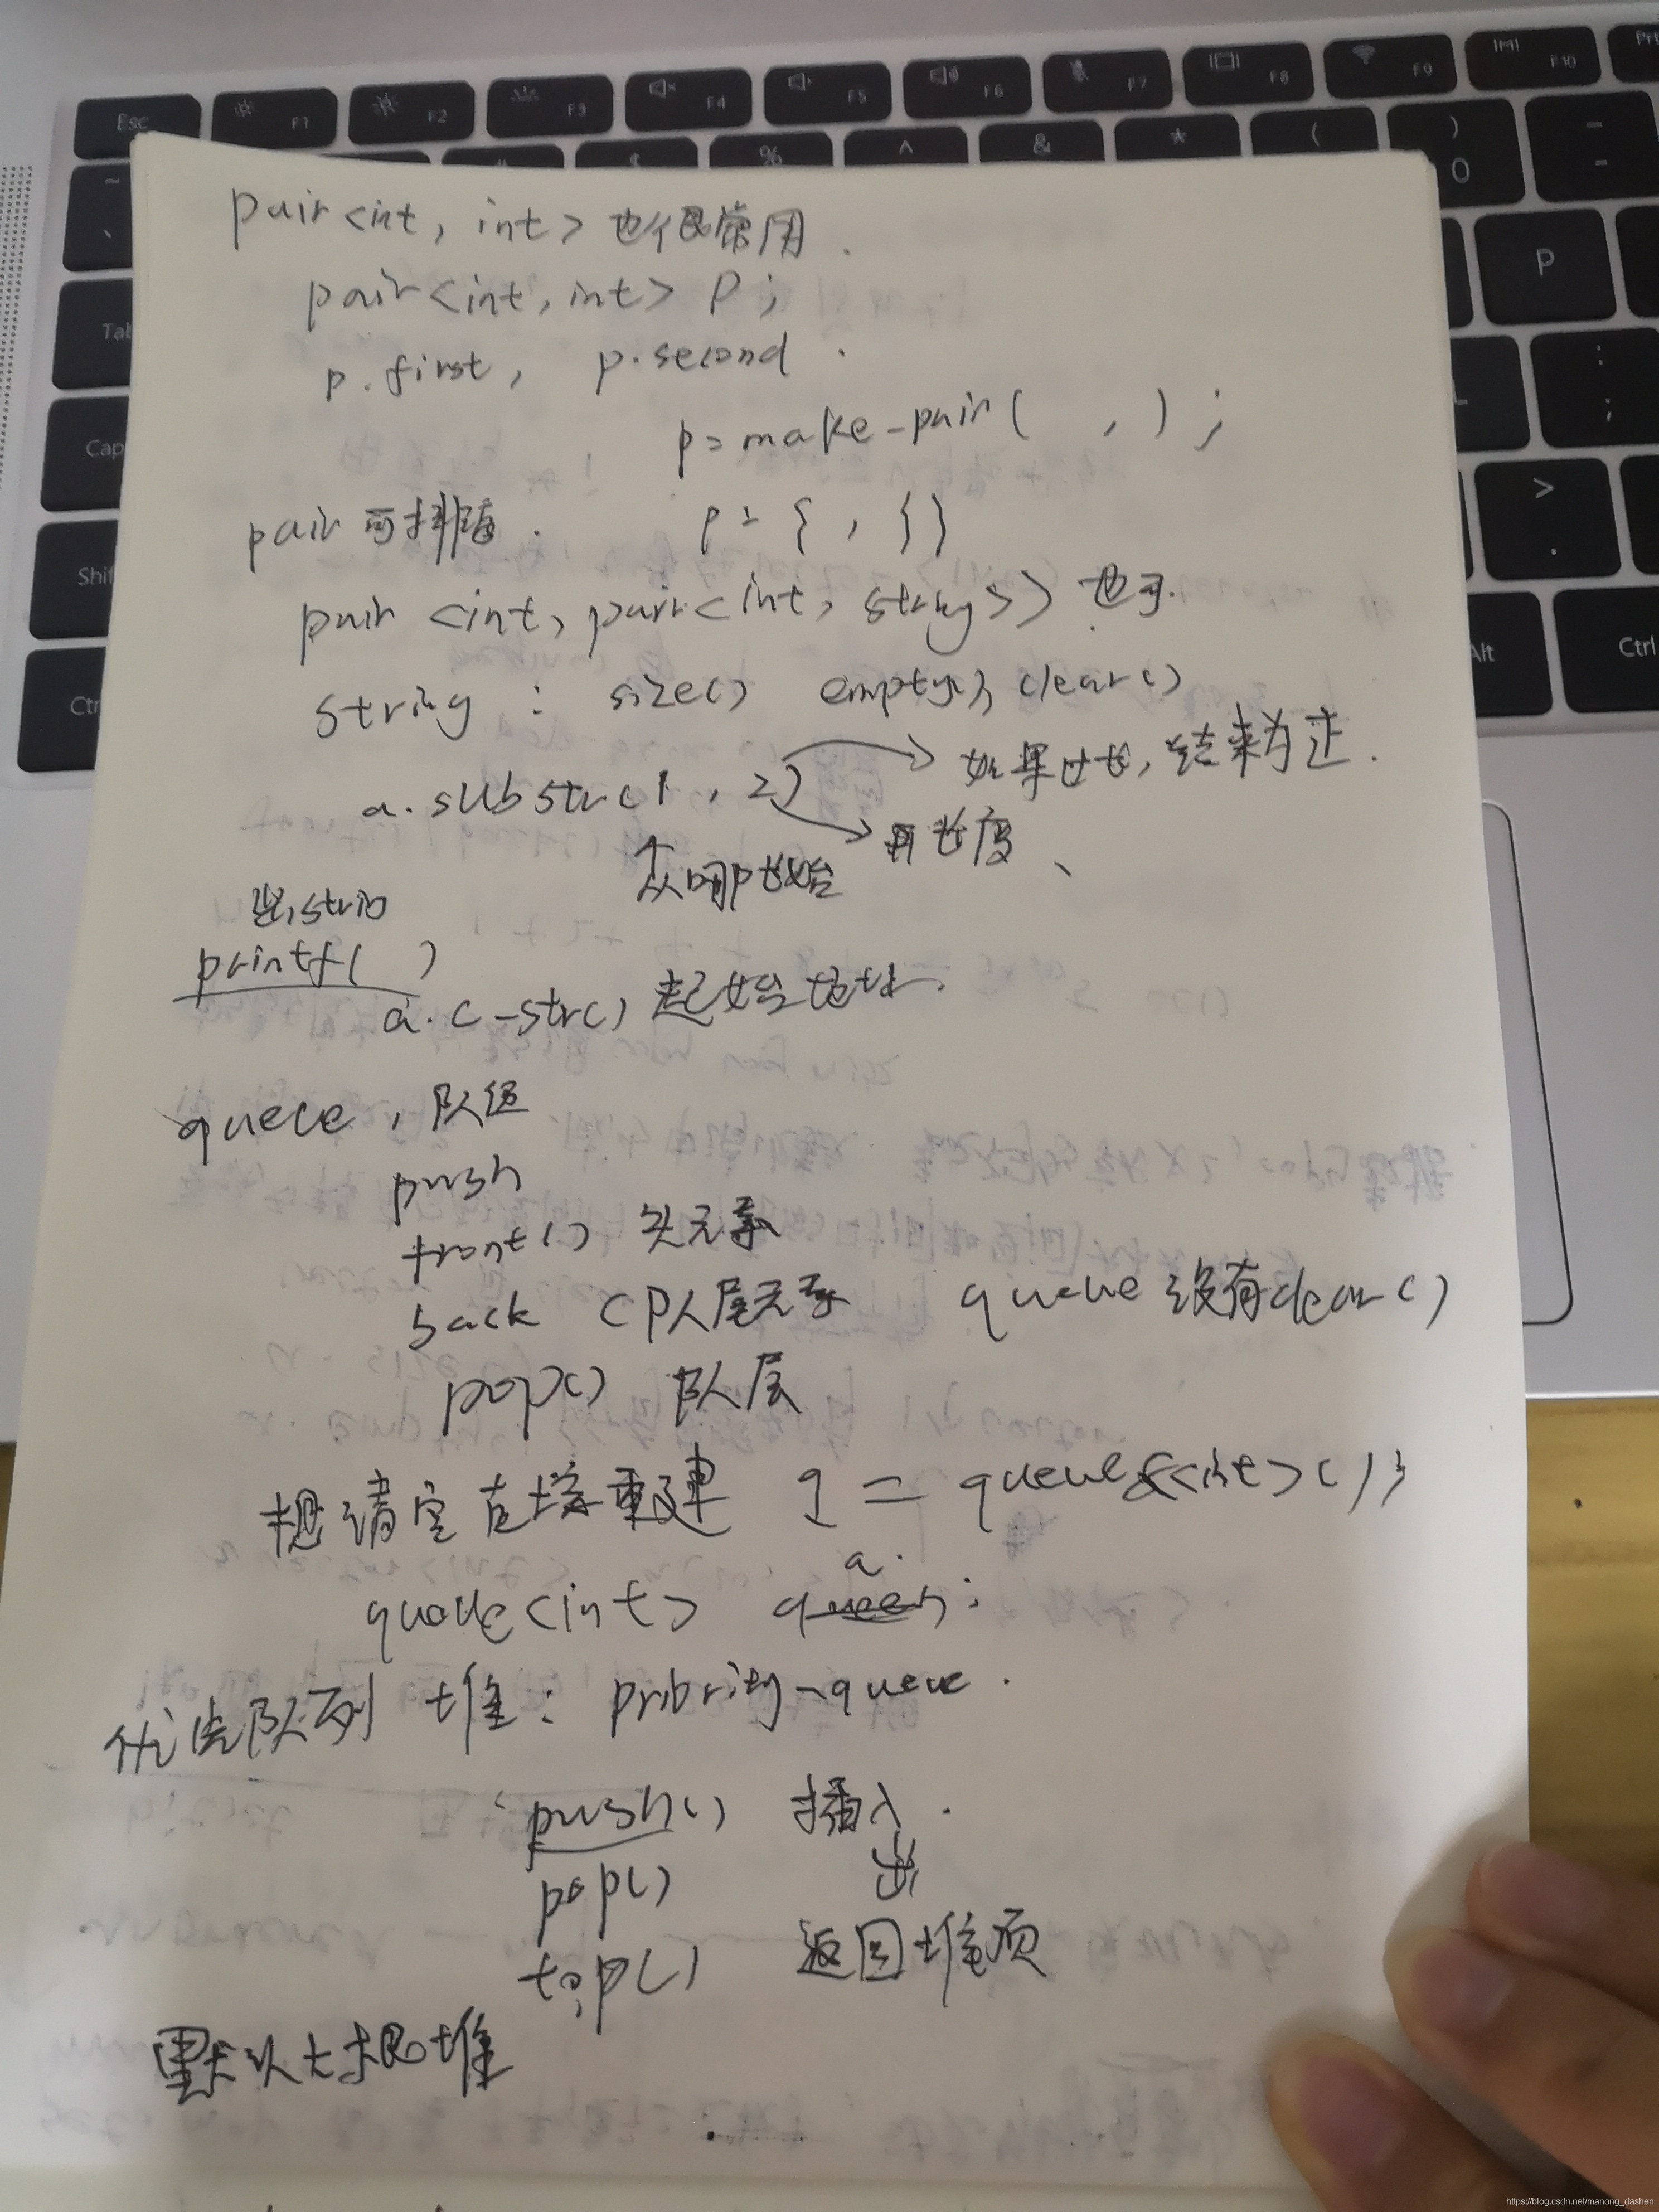 Esc F1 F2 F3 F4 F5 F6 F7 F8 F9 F10
% ^ & * ( ) 0 - -
Tab P
Cap : ;
Shif > .
Ctr Alt Ctrl
pair<int, int> 也很常用.
pair<int, int> P;
p.first, p.second.
p=make-pair( , );
pair 可排序. p = { , { } }
pair <int, pair<int, string>> 也可.
string : size() empty(), clear()
a.substr(1, 2) 如果过长, 结束为止.
长度、
从哪开始
printf( )
a.c-str() 起始地址.
queue, 队
push
front() 头元素
back (队尾元素 queue 没有clear()
pop() 队尾
想清空 直接重建 q = queue<int>();
a.
queue<int> q ;
优先队列 堆: priority-queue.
push() 插入.
pop() 出
top() 返回堆顶
默认大根堆
https://blog.csdn.net/manong_dashen